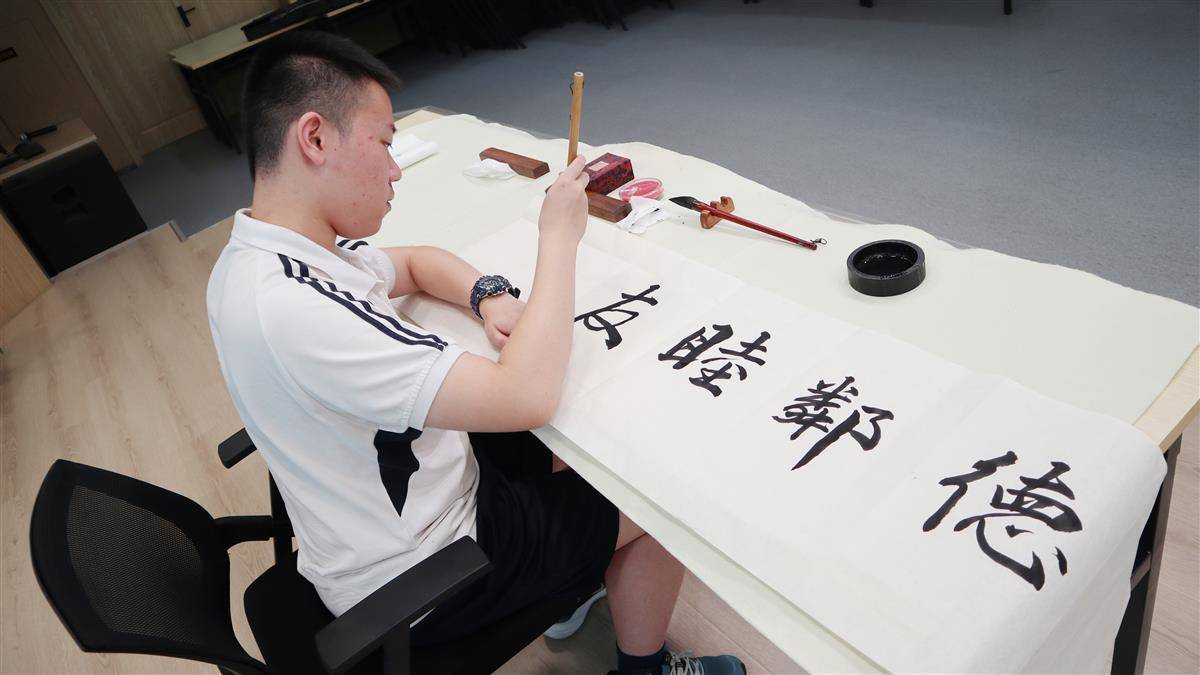 德鄰睦友